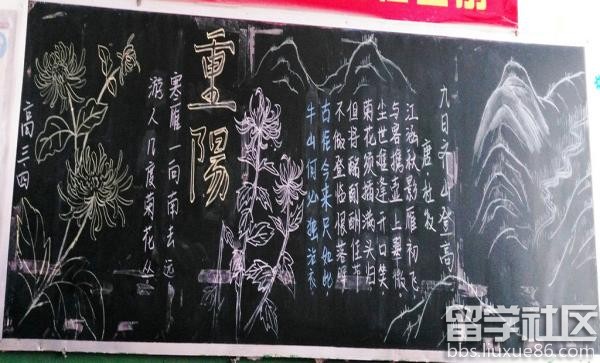 九日齐山登高
唐·杜牧
江涵秋影雁初飞，
与客携壶上翠微。
尘世难逢开口笑，
菊花须插满头归
但将酩酊酬佳节
不做登临恨落晖
古往今来只如此，
牛山何必独沾衣
重陽
寒雁一向南去远
游人几度菊花丛
高三四
留学社区
bbs.liuxue86.com